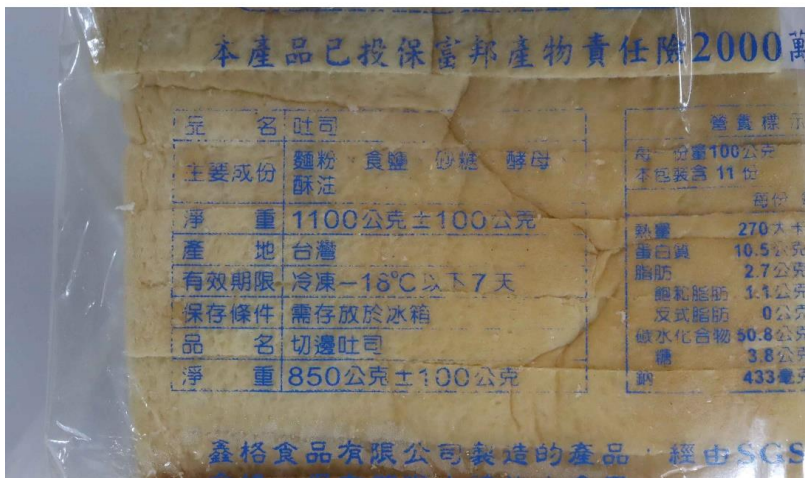 本產品已投保富邦產物責任險2000萬
品 名 吐司
主要成份 麵粉 食鹽 砂糖 酵母
酥油
淨 重 1100公克±100公克
產 地 台灣
有效期限 冷凍-18℃以下7天
保存條件 需存放於冰箱
品 名 切邊吐司
淨 重 850公克±100公克
營養標示
每一份量100公克
本包裝含 11 份
每份
熱量 270大卡
蛋白質 10.5公克
脂肪 2.7公克
飽和脂肪 1.1公克
反式脂肪 0公克
碳水化合物 50.8公克
糖 3.8公克
鈉 433毫克
鑫格食品有限公司製造的產品，經由SGS